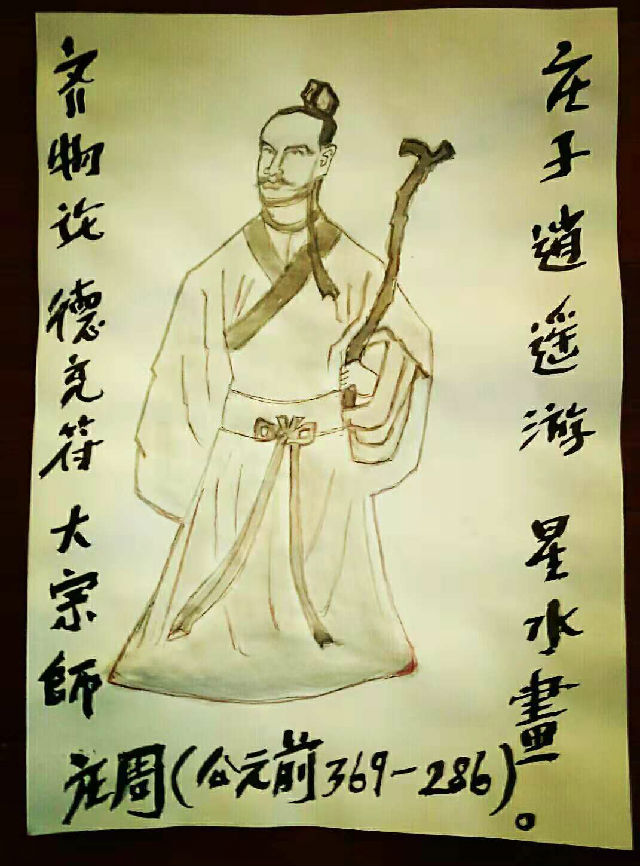 庄子逍遥游 星水畫。
齐物论 德充符 大宗師
庄周(公元前369-286)